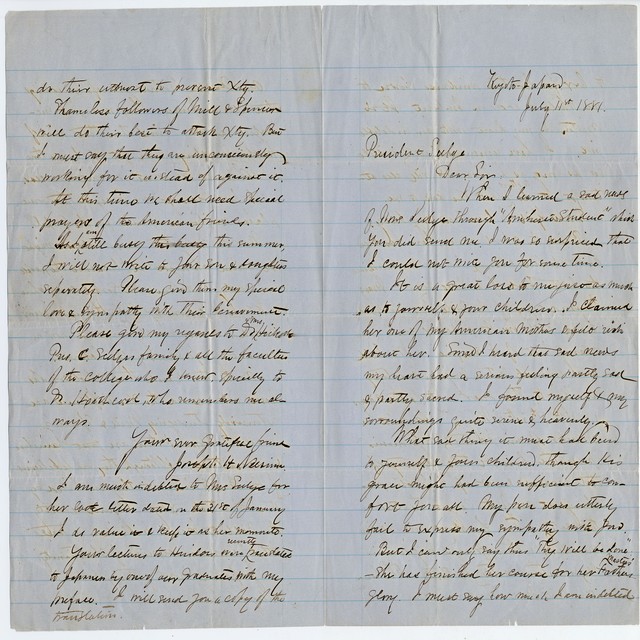 do their utmost to prevent Xty.
Thameless followers of Mill & Spencer
will do their best to attack Xty. But
I must say that they are unconsciously
working for it instead of against it.
At this time we shall need special
prayers of the American friends.
As I am little busy this summer,
I will not write to your son & daughters
separately. Please give them my special
love & sympathy with their bereavement.
Please give my regards to Dr Hitchcock
Pres. C. Seelye's family & all the faculties
of the College who I knew specially to
Dr. Hitchcock, who remembers me al-
ways.
Your ever grateful friend
Joseph H. Neesima
I am much indebted to Mrs Seelye for
her last letter dated on the 21st of January
I value it & keep it as her memento.
Your lectures to Hindoos were recently translated
to Japanese by one of our graduates, with my
preface. I will send you a copy of the
translation.
Kyoto Japan
July 11st 1881.
President Seelye
Dear Sir,
When I learned a sad news
of Mrs. Seelye through "Amherst Student" which
you did send me I was so surprised that
I could not write you for some time.
It is a great loss to me just as much
as to yourself & your children. I claimed
her one of my American mothers & felt
about her. Since I heard that sad news
my heart had a serious feeling partly sad
& partly sacred. I found myself & my
surroundings quite serene & heavenly.
What sad thing it must have been
to yourself & your children, though His
grace might had been sufficient to com-
fort you all. My pen does utterly
fail to express my sympathy with you.
But I can only say thus "thy will be done".
She has finished her course for her Heavenly Father's
glory. I must say how much I am indebted